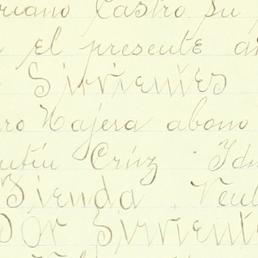 riano Castro su p
el presente a
Sirvientes
ro Najera abono
utin Crúz Idu
Tienda Veul
Dór Sirvient